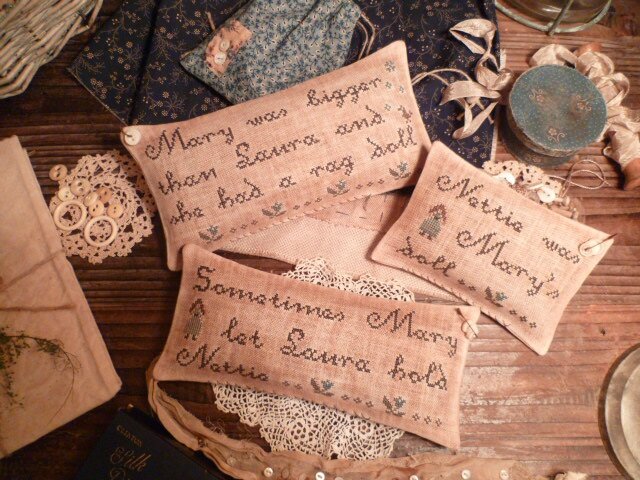 Mary was bigger
than Laura and
she had a rag doll
Nettie was
Mary's
doll
Sometimes Mary
let Laura hold
Nettie
CLINTON
Silk